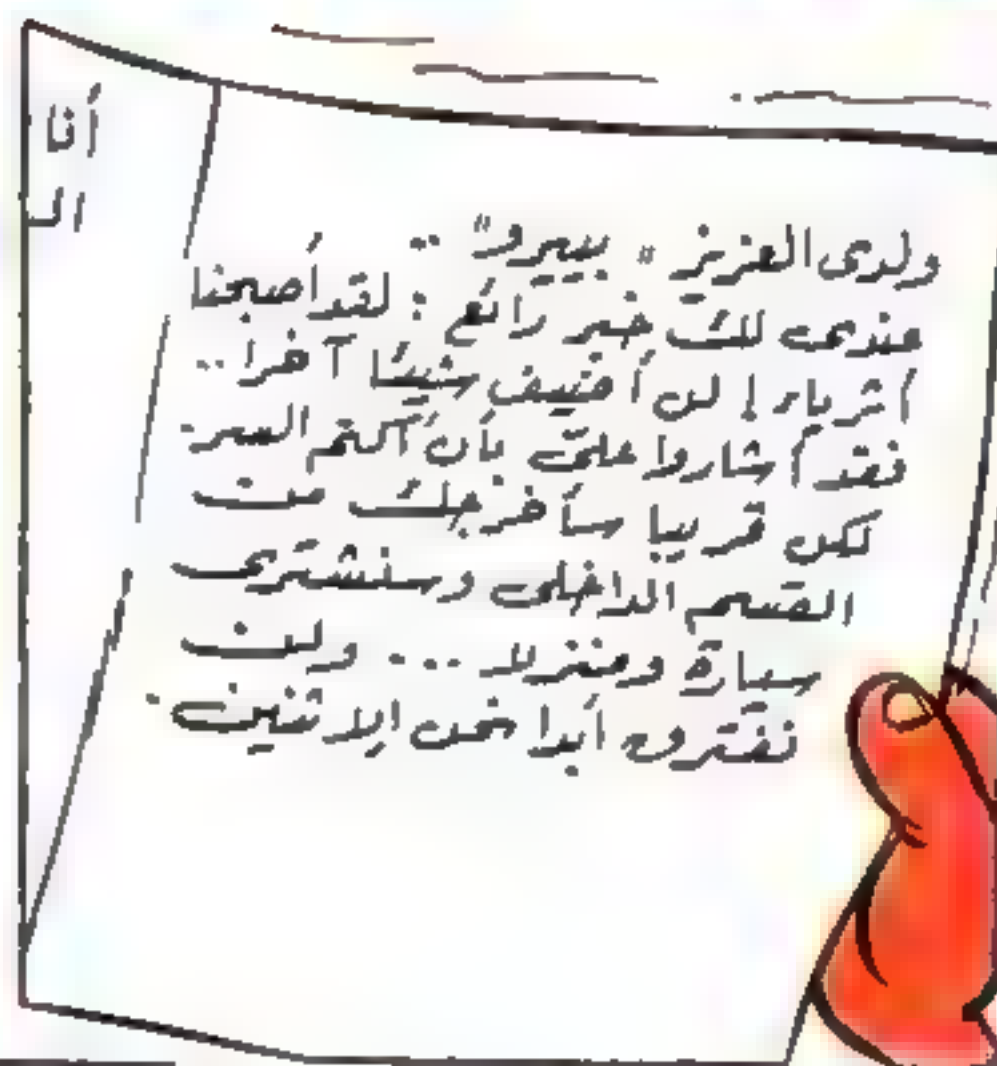 ولدى العزيز " بييرو" ..
عندى لك خبر رائع : لقد أصبحنا
أثرياء ! لن أضيف شيئا آخرا ..
فقد أشاروا على بأن أكتم السر .
لكن قريبا سأخرجك من
القسم الداخلى وسنشترى
سيارة ومنزلا ... ولن
نفترق أبدا نحن الاثنين .
أنا
الـ